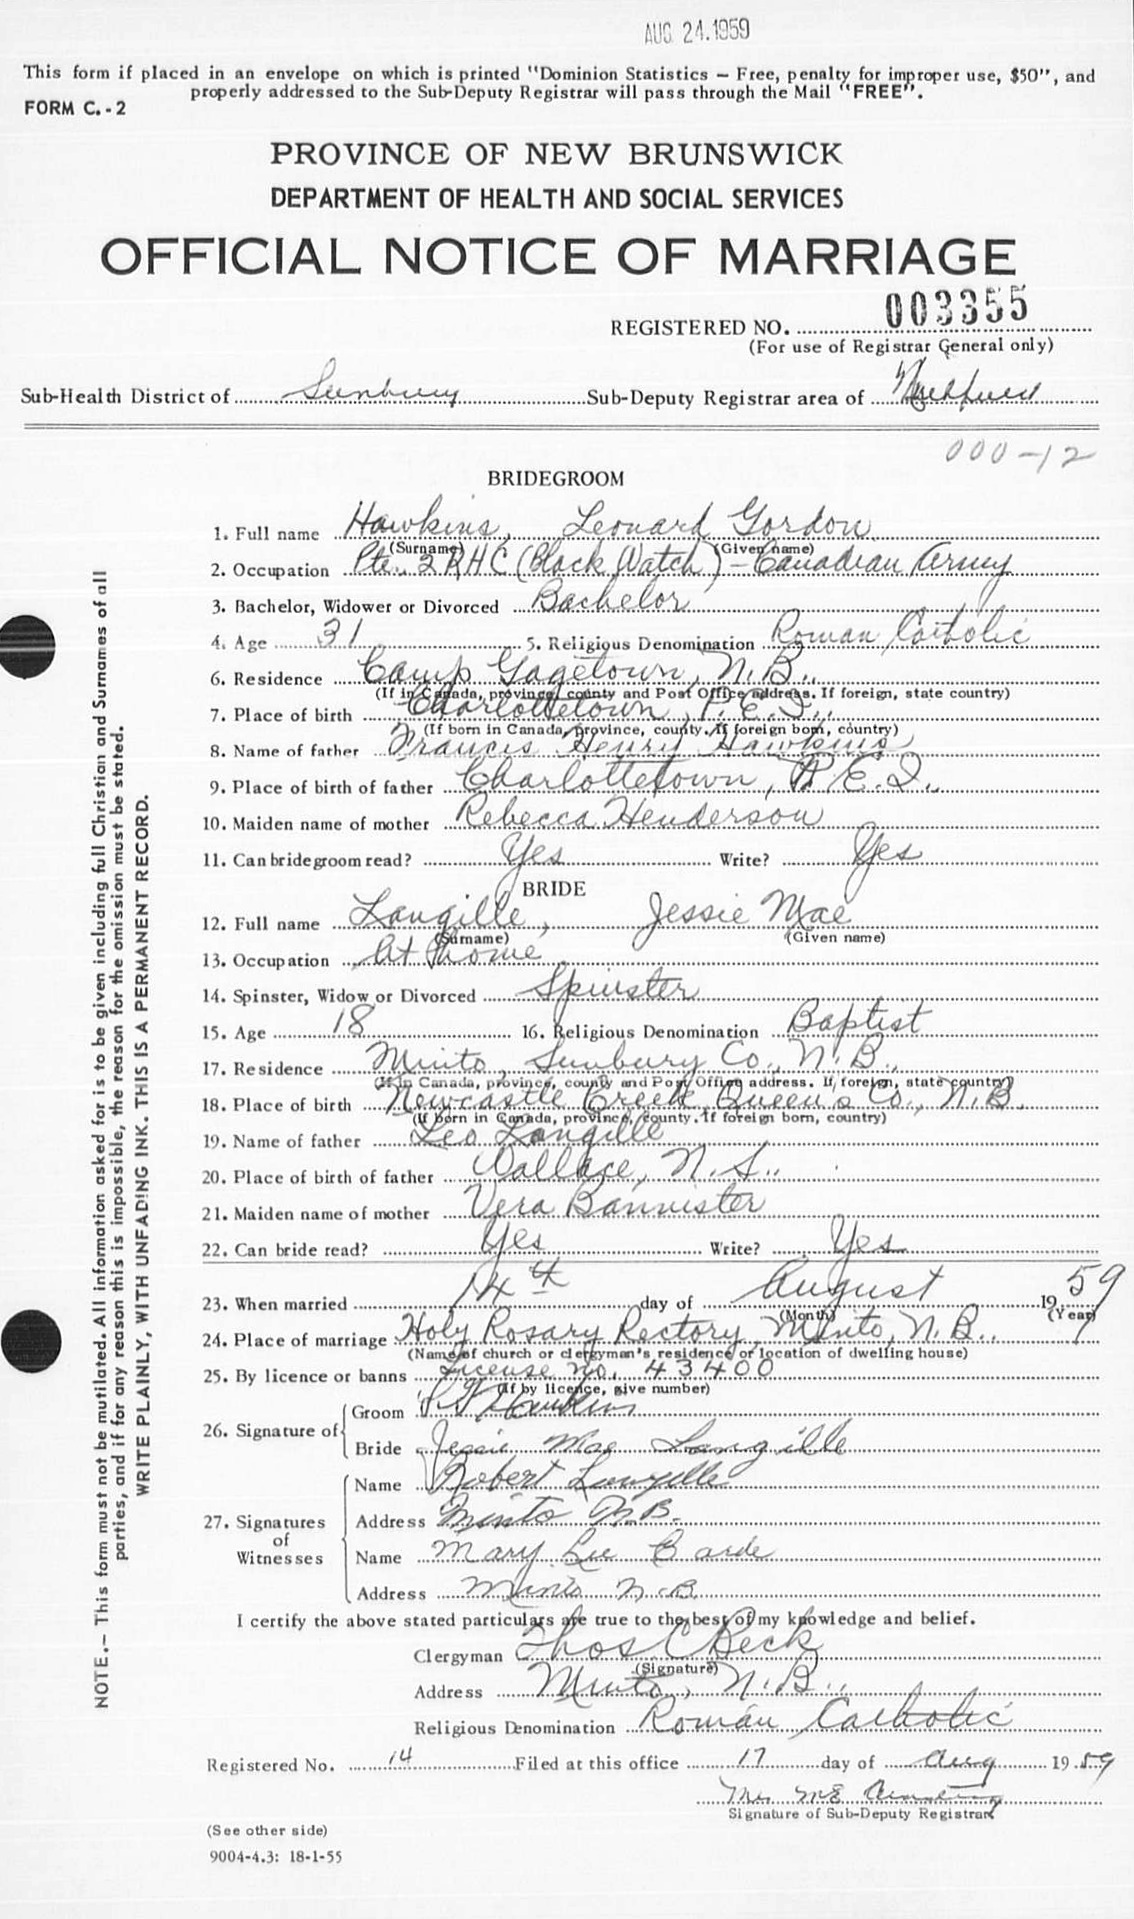 AUG 24.1959
This form if placed in an envelope on which is printed "Dominion Statistics – Free, penalty for improper use, $50", and
properly addressed to the Sub-Deputy Registrar will pass through the Mail "FREE".
FORM C. - 2
PROVINCE OF NEW BRUNSWICK
DEPARTMENT OF HEALTH AND SOCIAL SERVICES
OFFICIAL NOTICE OF MARRIAGE
REGISTERED NO. 003355
(For use of Registrar General only)
Sub-Health District of Sunbury Sub-Deputy Registrar area of
000-12
BRIDEGROOM
1. Full name Hawkins, Leonard Gordon
(Surname) (Given name)
2. Occupation Pte. 2 RHC (Black Watch) – Canadian Army
3. Bachelor, Widower or Divorced Bachelor
4. Age 31 5. Religious Denomination Roman Catholic
6. Residence Camp Gagetown, N.B.
(If in Canada, province, county and Post Office address. If foreign, state country)
7. Place of birth Charlottetown, P.E.I.
(If born in Canada, province, county. If foreign born, country)
8. Name of father Francis Henry Hawkins
9. Place of birth of father Charlottetown, P.E.I.
10. Maiden name of mother Rebecca Henderson
11. Can bridegroom read? Yes Write? Yes
BRIDE
12. Full name Langille, Jessie Mae
(Surname) (Given name)
13. Occupation At home
14. Spinster, Widow or Divorced Spinster
15. Age 18 16. Religious Denomination Baptist
17. Residence Minto, Sunbury Co., N.B.
(If in Canada, province, county and Post Office address. If foreign, state country)
18. Place of birth Newcastle Creek Queen's Co., N.B.
(If born in Canada, province, county. If foreign born, country)
19. Name of father Leo Langille
20. Place of birth of father Wallace, N.S.
21. Maiden name of mother Vera Bannister
22. Can bride read? Yes Write? Yes
23. When married 14th day of August 1959
(Month) (Year)
24. Place of marriage Holy Rosary Rectory, Minto, N.B.
(Name of church or clergyman's residence or location of dwelling house)
25. By licence or banns License No. 43400
(If by licence, give number)
26. Signature of Groom L G Hawkins
Bride Jessie Mae Langille
27. Signatures of Witnesses
Name Robert Langille
Address Minto N.B.
Name Mary Lee
Address Minto N.B.
I certify the above stated particulars are true to the best of my knowledge and belief.
Clergyman Thos C Beck
(Signature)
Address Minto, N.B.
Religious Denomination Roman Catholic
Registered No. 14 Filed at this office 17 day of Aug 1959
Mrs M E
Signature of Sub-Deputy Registrar
(See other side)
9004-4.3: 18-1-55
NOTE.– This form must not be mutilated. All information asked for is to be given including full Christian and Surnames of all
parties, and if for any reason this is impossible, the reason for the omission must be stated.
WRITE PLAINLY, WITH UNFADING INK. THIS IS A PERMANENT RECORD.